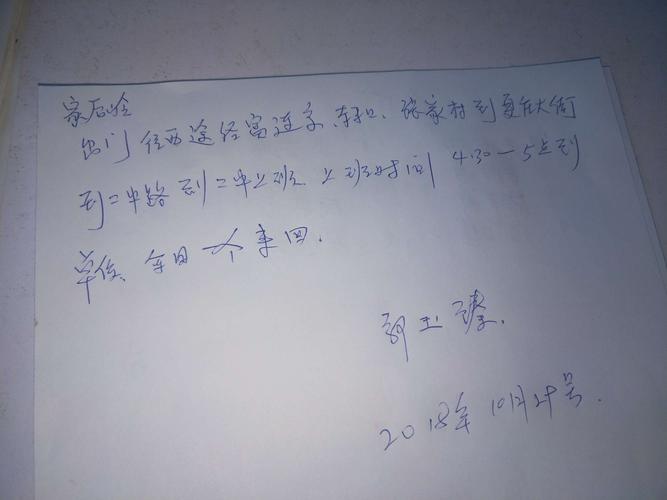 家后岭
出门往西途经富连李、东口、张家村到夏庄大街
到二中路到二中上班上班时间4.30—5点到
单位、每日一个来回.
郭玉臻.
2018年10月29号.